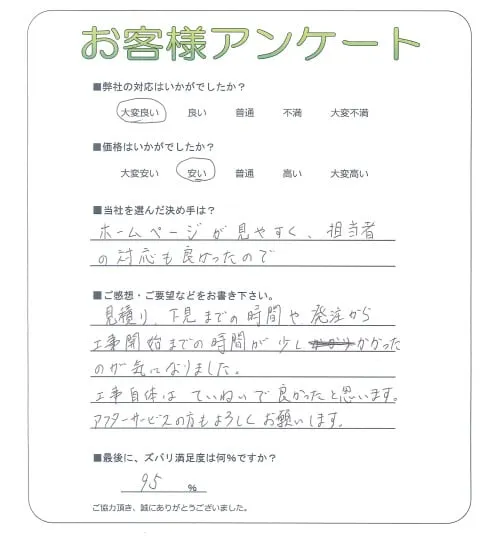 お客様アンケート
■弊社の対応はいかがでしたか？
大変良い 良い 普通 不満 大変不満
■価格はいかがでしたか？
大変安い 安い 普通 高い 大変高い
■当社を選んだ決め手は？
ホームページが見やすく、担当者
の対応も良かったので
■ご感想・ご要望などをお書き下さい。
見積り、下見までの時間や発注から
工事開始までの時間が少しかかった
のが気になりました。
工事自体はていねいで良かったと思います。
アフターサービスの方もよろしくお願いします。
■最後に、ズバリ満足度は何%ですか？
95 %
ご協力頂き、誠にありがとうございました。